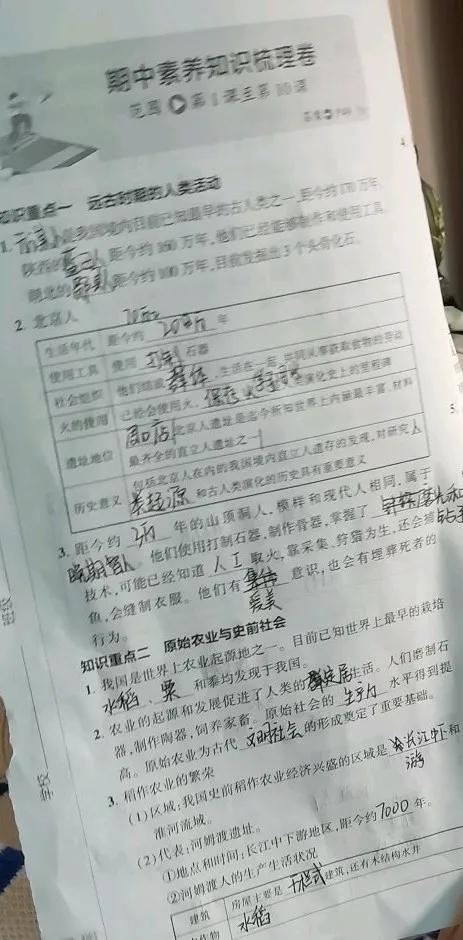 期中素养知识梳理卷
范围 第1课至第10课
知识重点一 远古时期的人类活动
1. 元谋人是我国境内目前已知最早的古人类之一,距今约170万年,
陕西的蓝田人距今约160万年,他们已经能够制作和使用工具,
湖北的郧县人距今约100万年,目前发掘出3个头骨化石。
2. 北京人
生活年代 距今约 70万—20万 年
使用工具 使用 打制 石器
社会组织 他们结成 群体,生活在一起,共同从事获取食物的劳动
火的使用 已经会使用火,保存火 是人类演化史上的里程碑
遗址地位 周口店北京人遗址是迄今所知世界上内涵最丰富、材料
最齐全的直立人遗址之一
历史意义 包括北京人在内的我国境内直立人遗存的发现,对研究人
类起源 和古人类演化的历史具有重要意义
3. 距今约 3万 年的山顶洞人,模样和现代人相同,属于
晚期智人。他们使用打制石器,制作骨器,掌握了 磨光和钻孔
技术,可能已经知道 人工 取火,靠采集、狩猎为生,还会捕
鱼,会缝制衣服。他们有 爱美 意识,也会有埋葬死者的
行为。
知识重点二 原始农业与史前社会
1. 我国是世界上农业起源地之一。目前已知世界上最早的栽培
水稻、粟 和黍均发现于我国。
2. 农业的起源和发展促进了人类的 定居生活。人们磨制石
器,制作陶器,饲养家畜。原始社会的 生产力 水平得到提
高。原始农业为古代 文明社会 的形成奠定了重要基础。
3. 稻作农业的繁荣
(1)区域:我国史前稻作农业经济兴盛的区域是 长江中下游 和
淮河流域。
(2)代表:河姆渡遗址。
①地点和时间:长江中下游地区,距今约7000年。
②河姆渡人的生产生活状况
建筑 房屋主要是 干栏式 建筑,还有木结构水井
作物 水稻